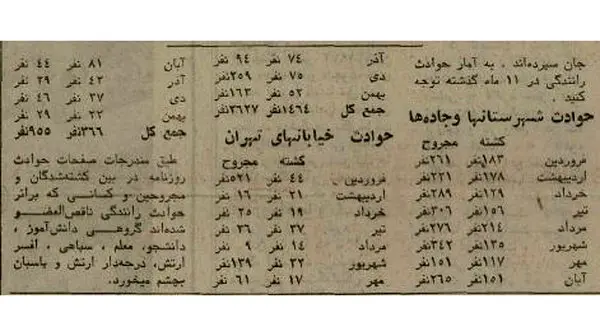 جان سپرده‌اند . به آمار حوادث
رانندگی در ۱۱ ماه گذشته توجه
کنید .
حوادث شهرستانها وجاده‌ها
کشته مجروح
فروردین ۱۸۳نفر ۲۶۱نفر
اردیبهشت ۱۷۸نفر ۲۲۱نفر
خرداد ۱۲۹نفر ۲۸۹نفر
تیر ۱۵۶نفر ۳۰۶نفر
مرداد ۲۱۴نفر ۲۷۶نفر
شهریور ۱۳۵نفر ۳۴۲نفر
مهر ۱۱۷نفر ۱۵۱نفر
آبان ۱۵۱نفر ۲۶۵نفر
آذر ۷۴ نفر ۹۴ نفر
دی ۷۵ نفر ۲۵۹نفر
بهمن ۵۲ نفر ۱۶۳نفر
جمع کل ۱۴۶۴نفر ۲۶۲۷نفر
حوادث خیابانهای تهران
کشته مجروح
فروردین ۴۴ نفر ۵۲۱نفر
اردیبهشت ۲۱ نفر ۱۶ نفر
خرداد ۱۹ نفر ۲۵ نفر
تیر ۳۷ نفر ۳۶ نفر
مرداد ۱۴ نفر ۹ نفر
شهریور ۳۲ نفر ۱۳۹نفر
مهر ۱۷ نفر ۶۱ نفر
آبان ۸۱ نفر ۴۴ نفر
آذر ۴۳ نفر ۲۹ نفر
دی ۳۷ نفر ۴۶ نفر
بهمن ۲۲ نفر ۲۹ نفر
جمع کل ۳۶۶نفر ۹۵۵نفر
طبق مندرجات صفحات حوادث
روزنامه در بین کشته‌شدگان و
مجروحین و کسانی که براثر
حوادث رانندگی ناقص‌العضو
شده‌اند گروهی دانش‌آموز ،
دانشجو، معلم ، سپاهی ، افسر
ارتش، درجه‌دار ارتش و پاسبان
بچشم میخورد.